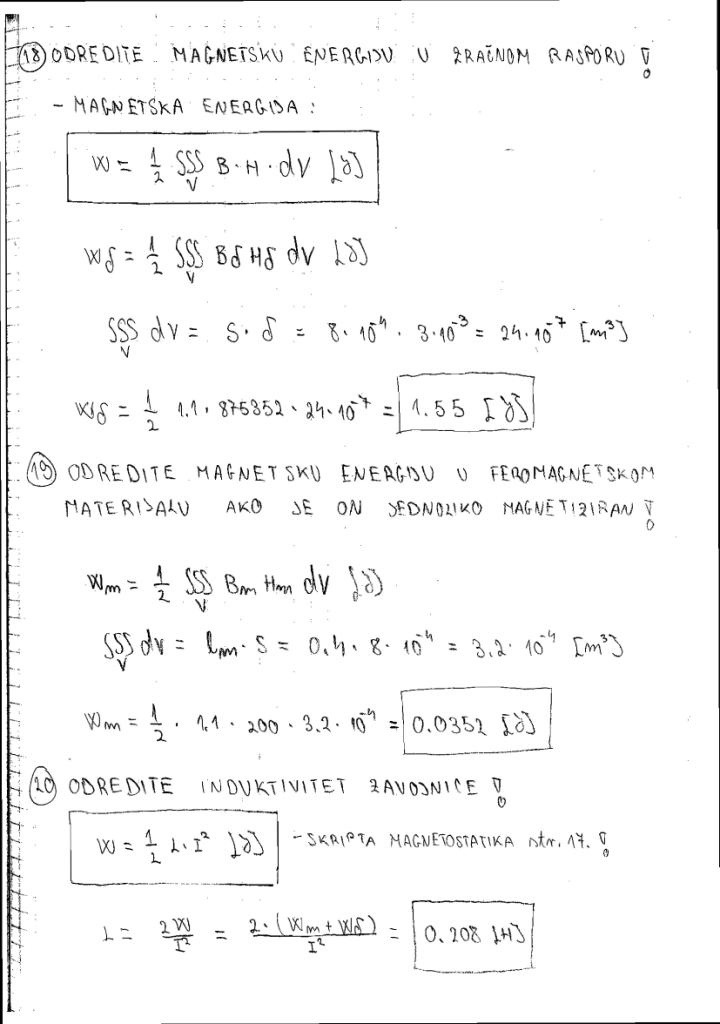 18 ODREDITE MAGNETSKU ENERGIJU U ZRAČNOM RASPORU !
- MAGNETSKA ENERGIJA :
W = 1/2 ∭_V B·H·dV [J]
Wδ = 1/2 ∭_V Bδ Hδ dV [J]
∭_V dV = S·δ = 8·10⁻⁴ · 3·10⁻³ = 24·10⁻⁷ [m³]
Wδ = 1/2 1.1 · 875352 · 24·10⁻⁷ = 1.55 [J]
19 ODREDITE MAGNETSKU ENERGIJU U FEROMAGNETSKOM
MATERIJALU AKO JE ON JEDNOLIKO MAGNETIZIRAN !
Wm = 1/2 ∭_V Bm Hm dV [J]
∭_V dV = lm·S = 0.4·8·10⁻⁴ = 3.2·10⁻⁴ [m³]
Wm = 1/2 · 1.1 · 200 · 3.2·10⁻⁴ = 0.0352 [J]
20 ODREDITE INDUKTIVITET ZAVOJNICE !
W = 1/2 L·I² [J] - SKRIPTA MAGNETOSTATIKA str. 17. !
L = 2W/I² = 2·(Wm + Wδ)/I² = 0.208 [H]